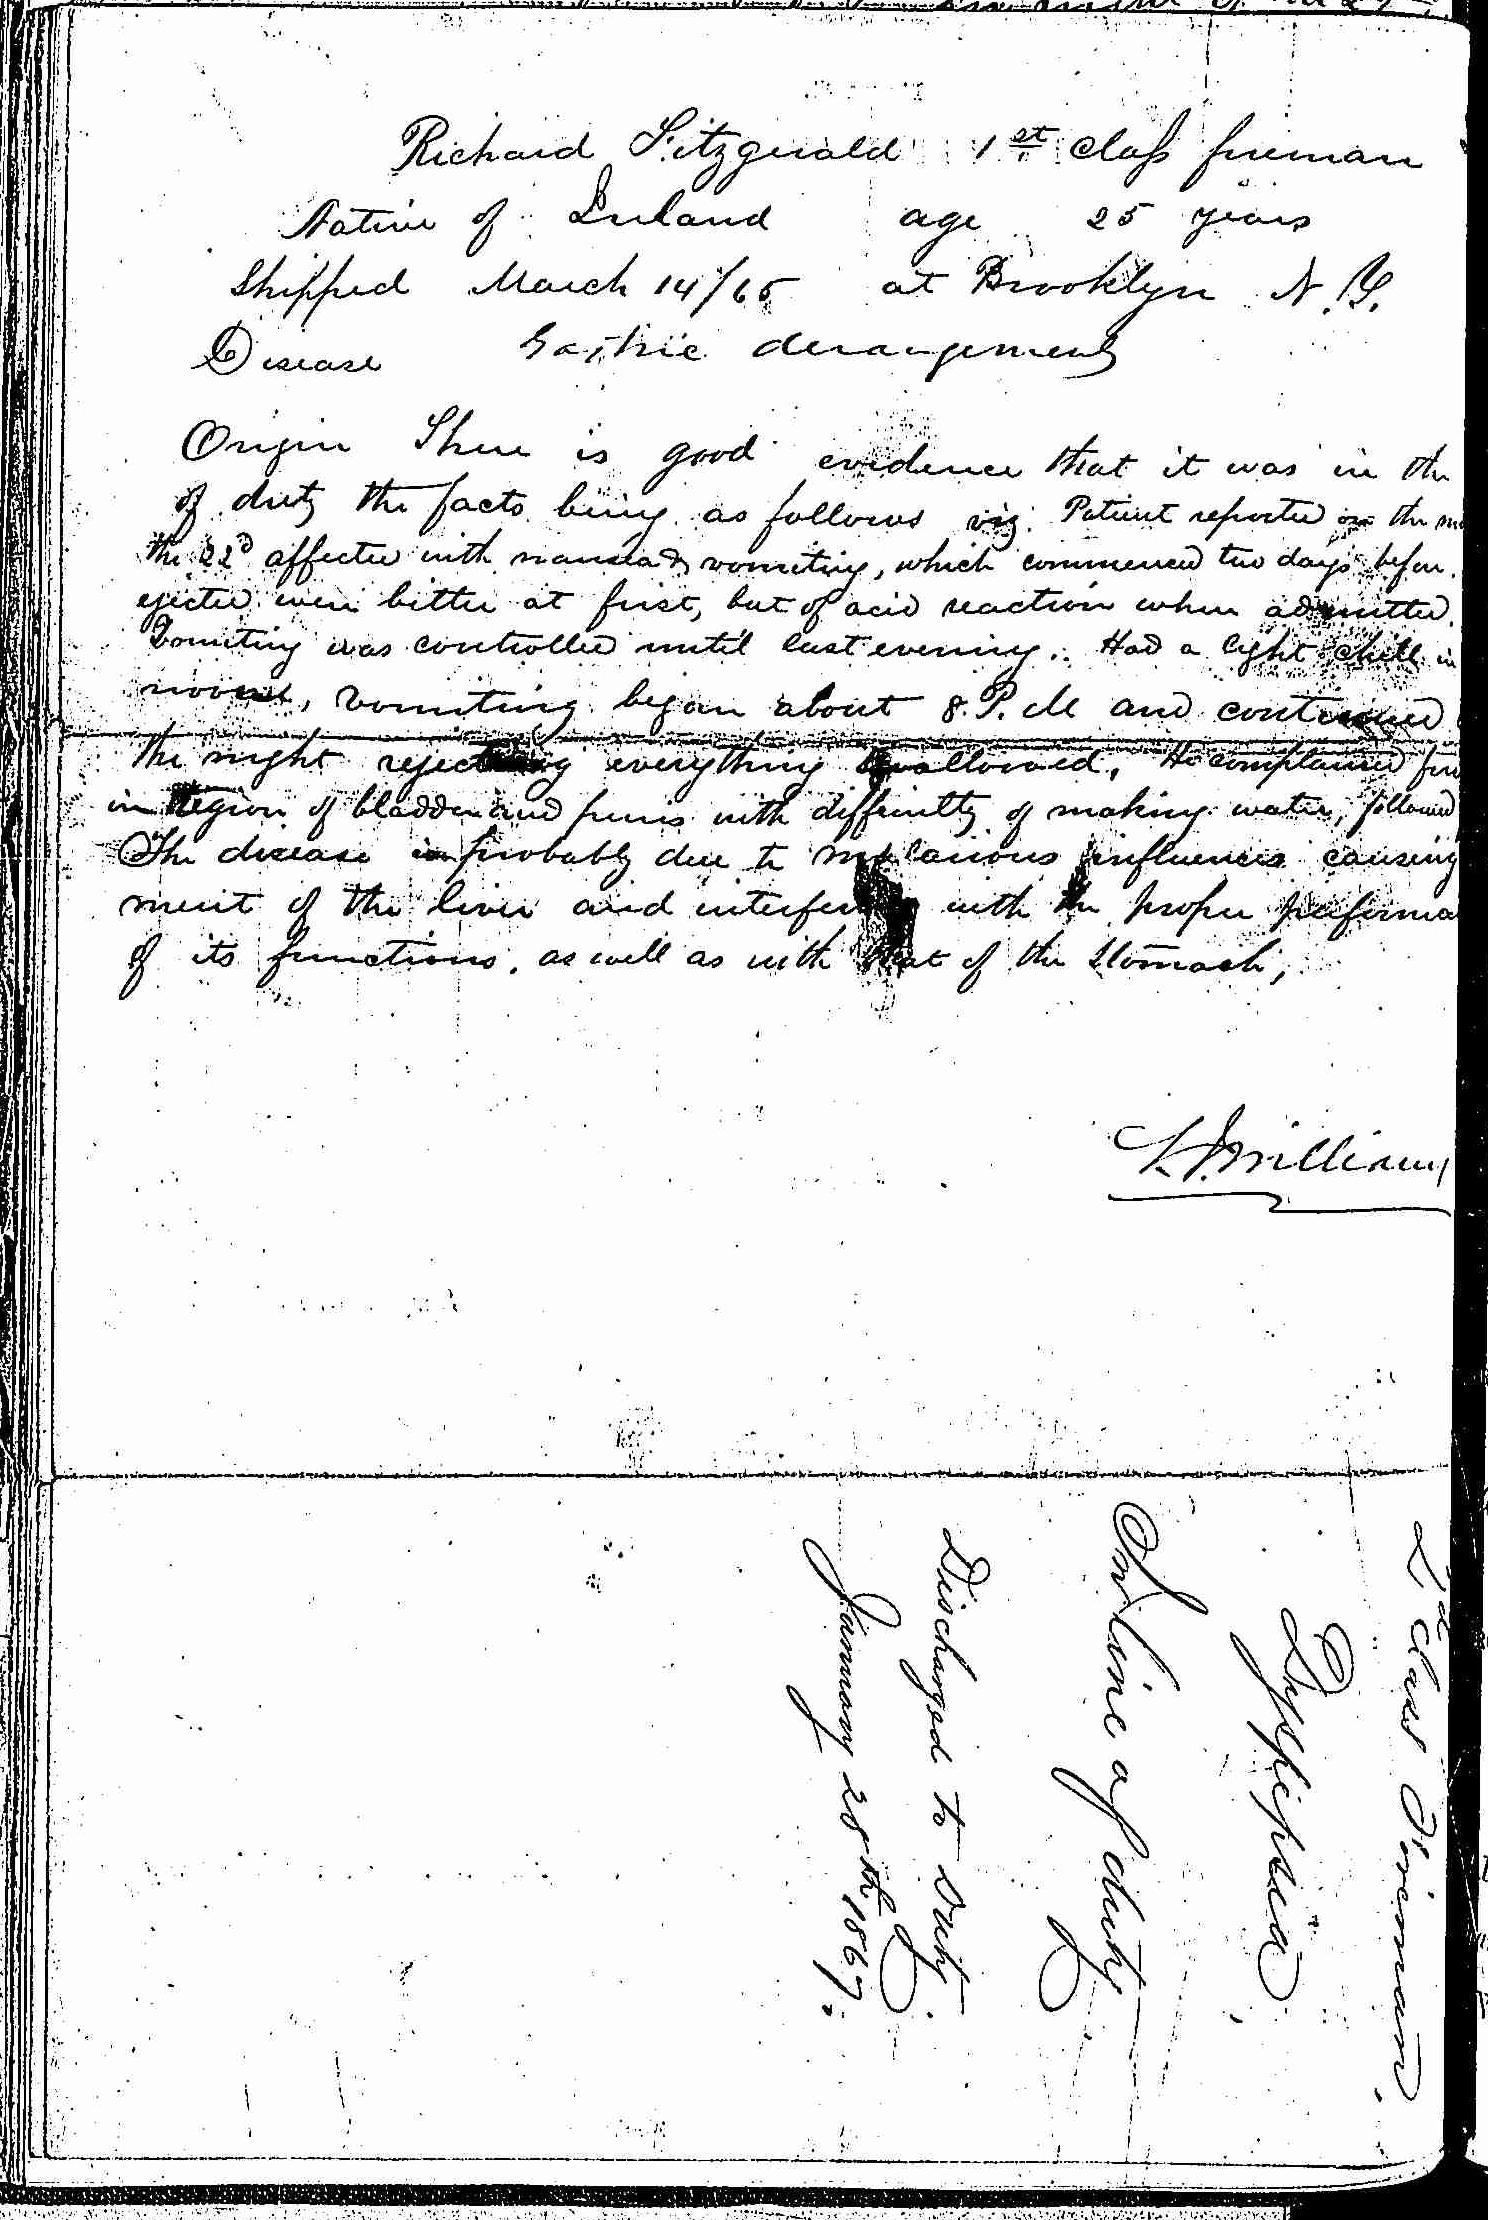 Richard Fitzgerald 1st class fireman
Native of Ireland age 25 years
Shipped March 14/65 at Brooklyn N.Y.
Disease Gastric derangement
Origin There is good evidence that it was in the
of duty the facts being as follows viz. Patient reported on the
the 22d affected with nausea & vomiting, which commenced two days before
ejected were bitter at first, but of acid reaction when admitted.
Vomiting was controlled until last evening. Had a light chill in
vomiting began about 8. P. M and continued
the night rejecting everything swallowed. He complained
in region of bladder and penis with difficulty of making water, followed
The disease is probably due to malarious influences causing
ment of the liver and interfering with the proper performa
of its functions, as well as with that of the stomach,
Williams
2d Class Fireman.
Dyspepsia,
In line of duty
Discharged to Duty.
January 28th 1867.